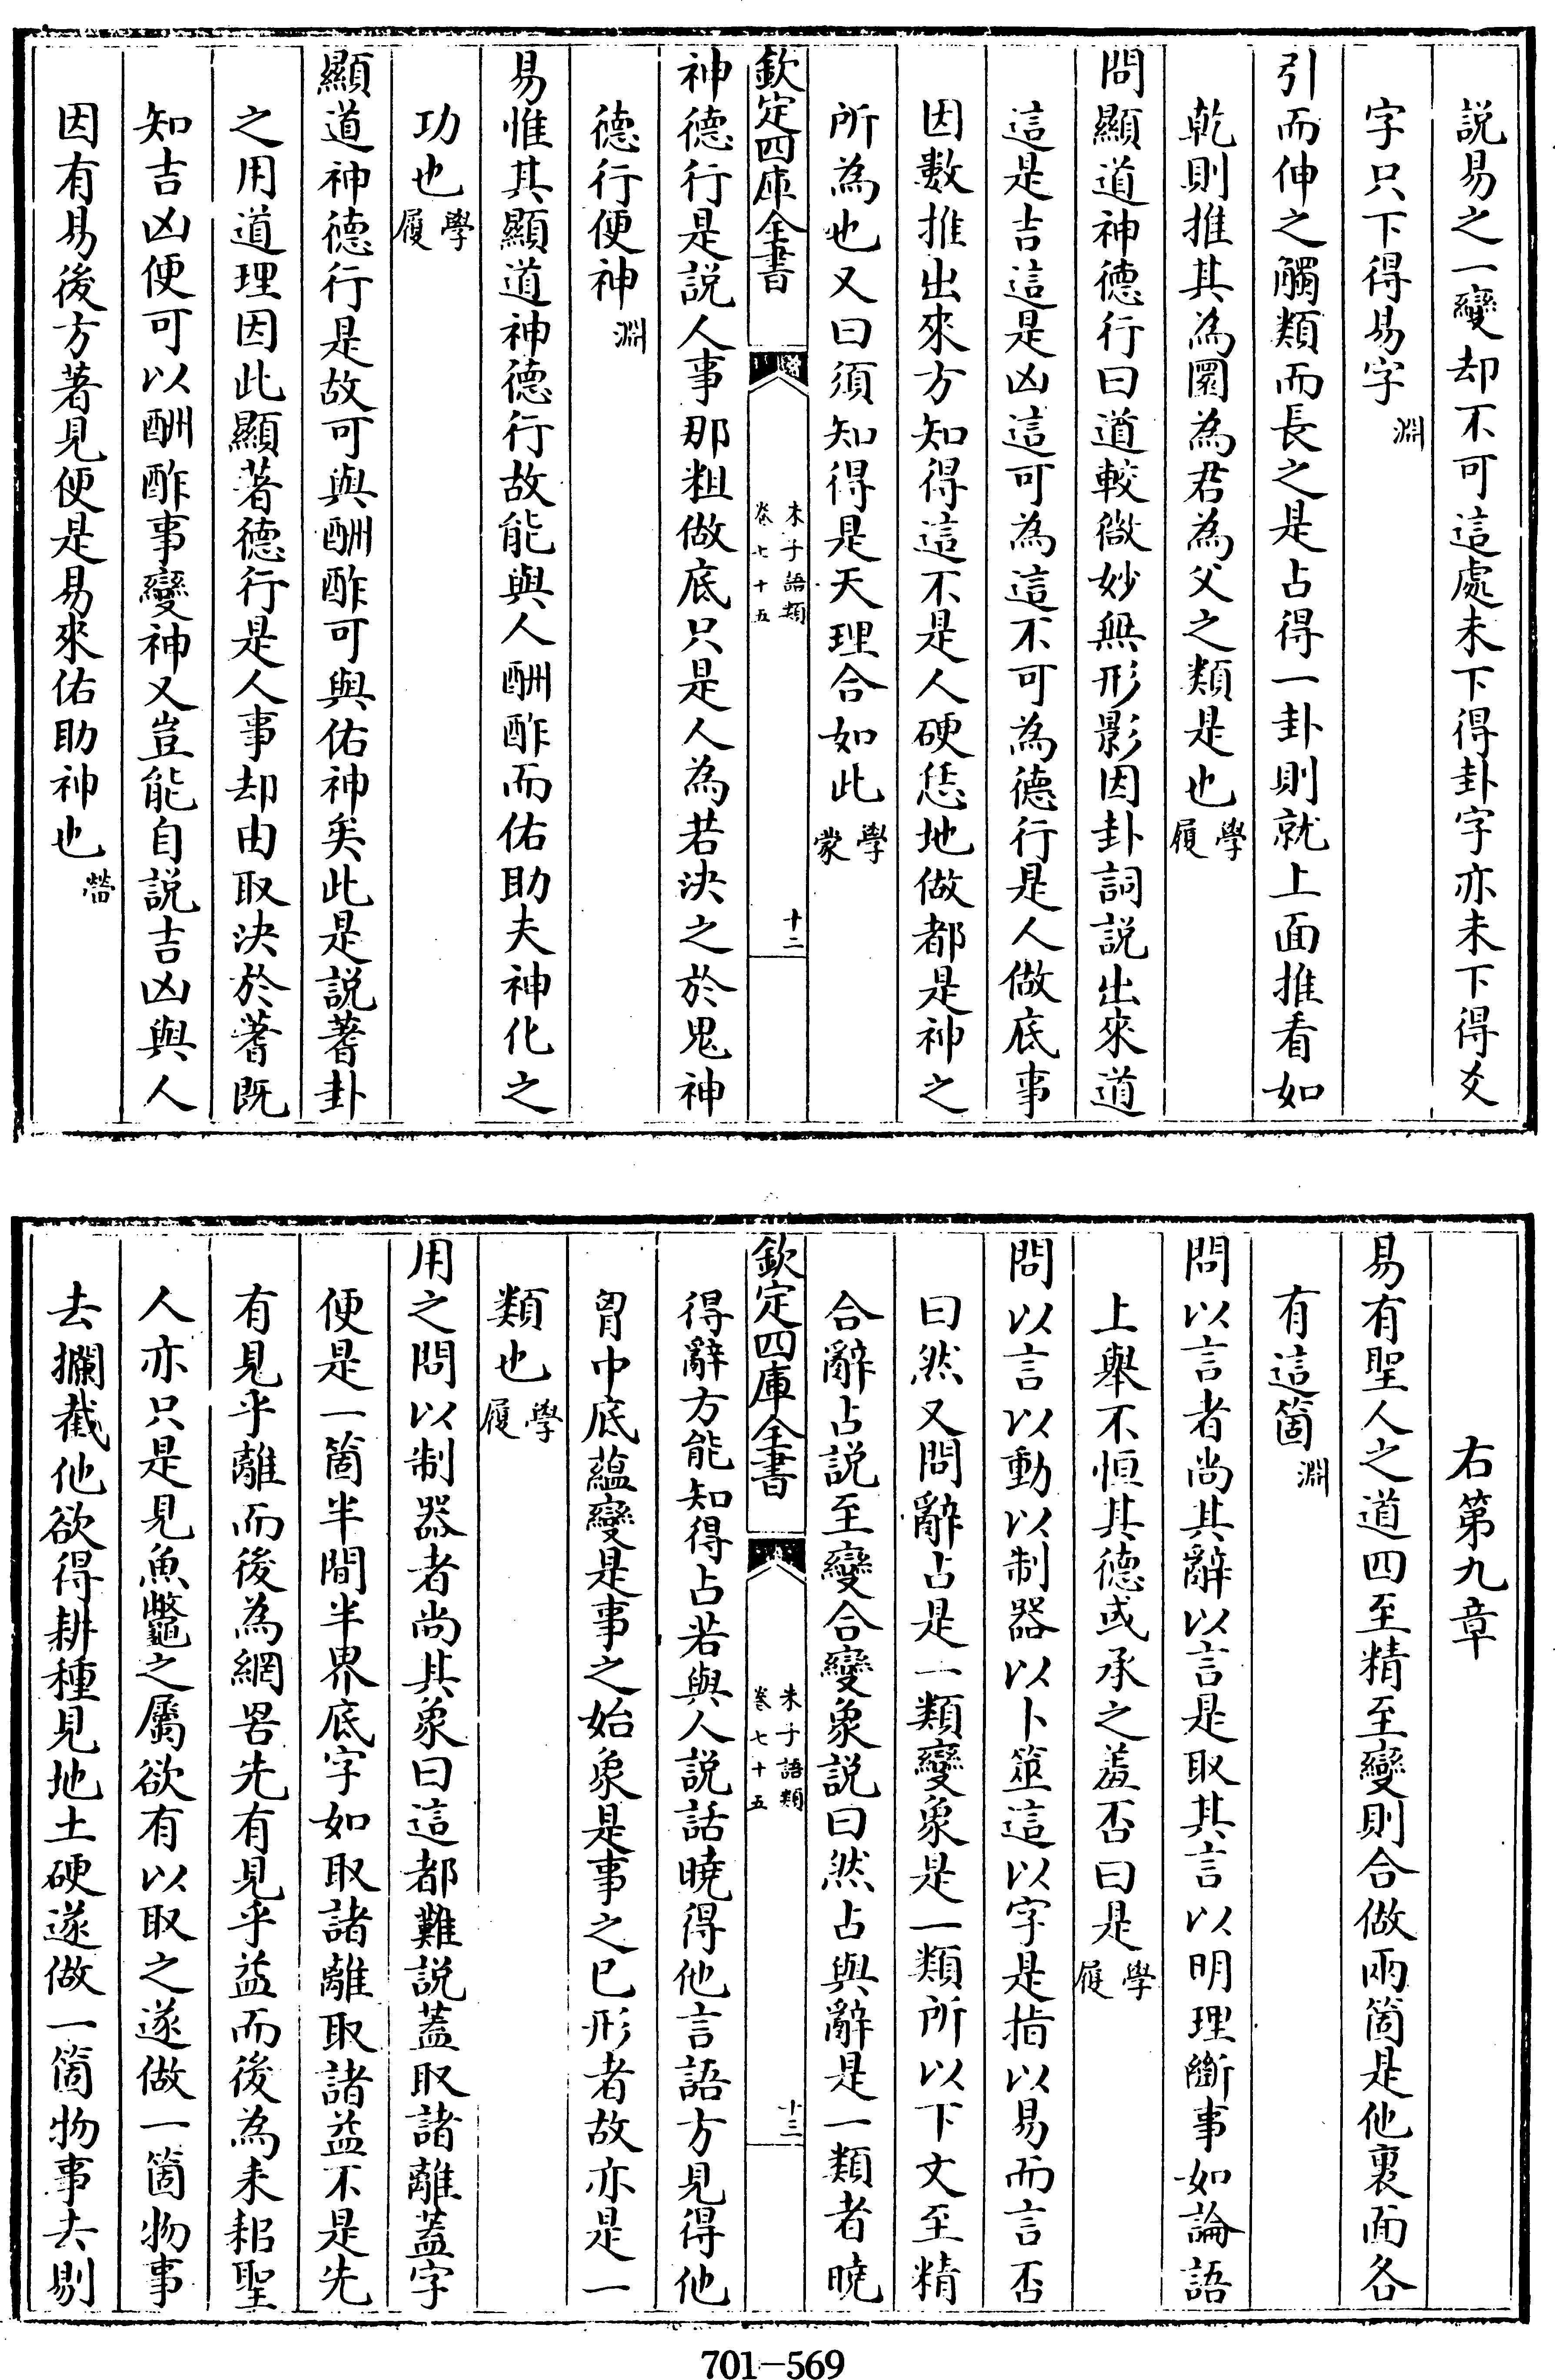 説易之一變却不可這處未下得卦字亦未下得爻
字只下得易字淵
引而伸之觸類而長之是占得一卦則就上面推看如
乾則推其為圜為君為父之類是也學履
問顯道神德行曰道較微妙無形影因卦詞説出來道
這是吉這是凶這可為這不可為德行是人做底事
因數推出來方知得這不是人硬恁地做都是神之
所為也又曰須知得是天理合如此學蒙
欽定四庫全書
朱子語類
卷七十五
十二
神德行是説人事那粗做底只是人為若決之於鬼神
德行便神淵
易惟其顯道神德行故能與人酬酢而佑助夫神化之
功也學履
顯道神德行是故可與酬酢可與佑神矣此是説蓍卦
之用道理因此顯著德行是人事却由取決於蓍既
知吉凶便可以酬酢事變神又豈能自説吉凶與人
因有易後方著見便是易來佑助神也㽦
右第九章
易有聖人之道四至精至變則合做兩箇是他裏面各
有這箇淵
問以言者尚其辭以言是取其言以明理斷事如論語
上舉不恒其德或承之羞否曰是學履
問以言以動以制器以卜筮這以字是指以易而言否
曰然又問辭占是一類變象是一類所以下文至精
合辭占説至變合變象説曰然占與辭是一類者曉
欽定四庫全書
朱子語類
卷七十五
十三
得辭方能知得占若與人説話曉得他言語方見得他
胷中底藴變是事之始象是事之已形者故亦是一
類也學履
用之問以制器者尚其象曰這都難説蓋取諸離蓋字
便是一箇半間半界底字如取諸離取諸益不是先
有見乎離而後為網罟先有見乎益而後為耒耜聖
人亦只是見魚鼈之屬欲有以取之遂做一箇物事
去攔截他欲得耕種見地土硬遂做一箇物事去剔
701-569